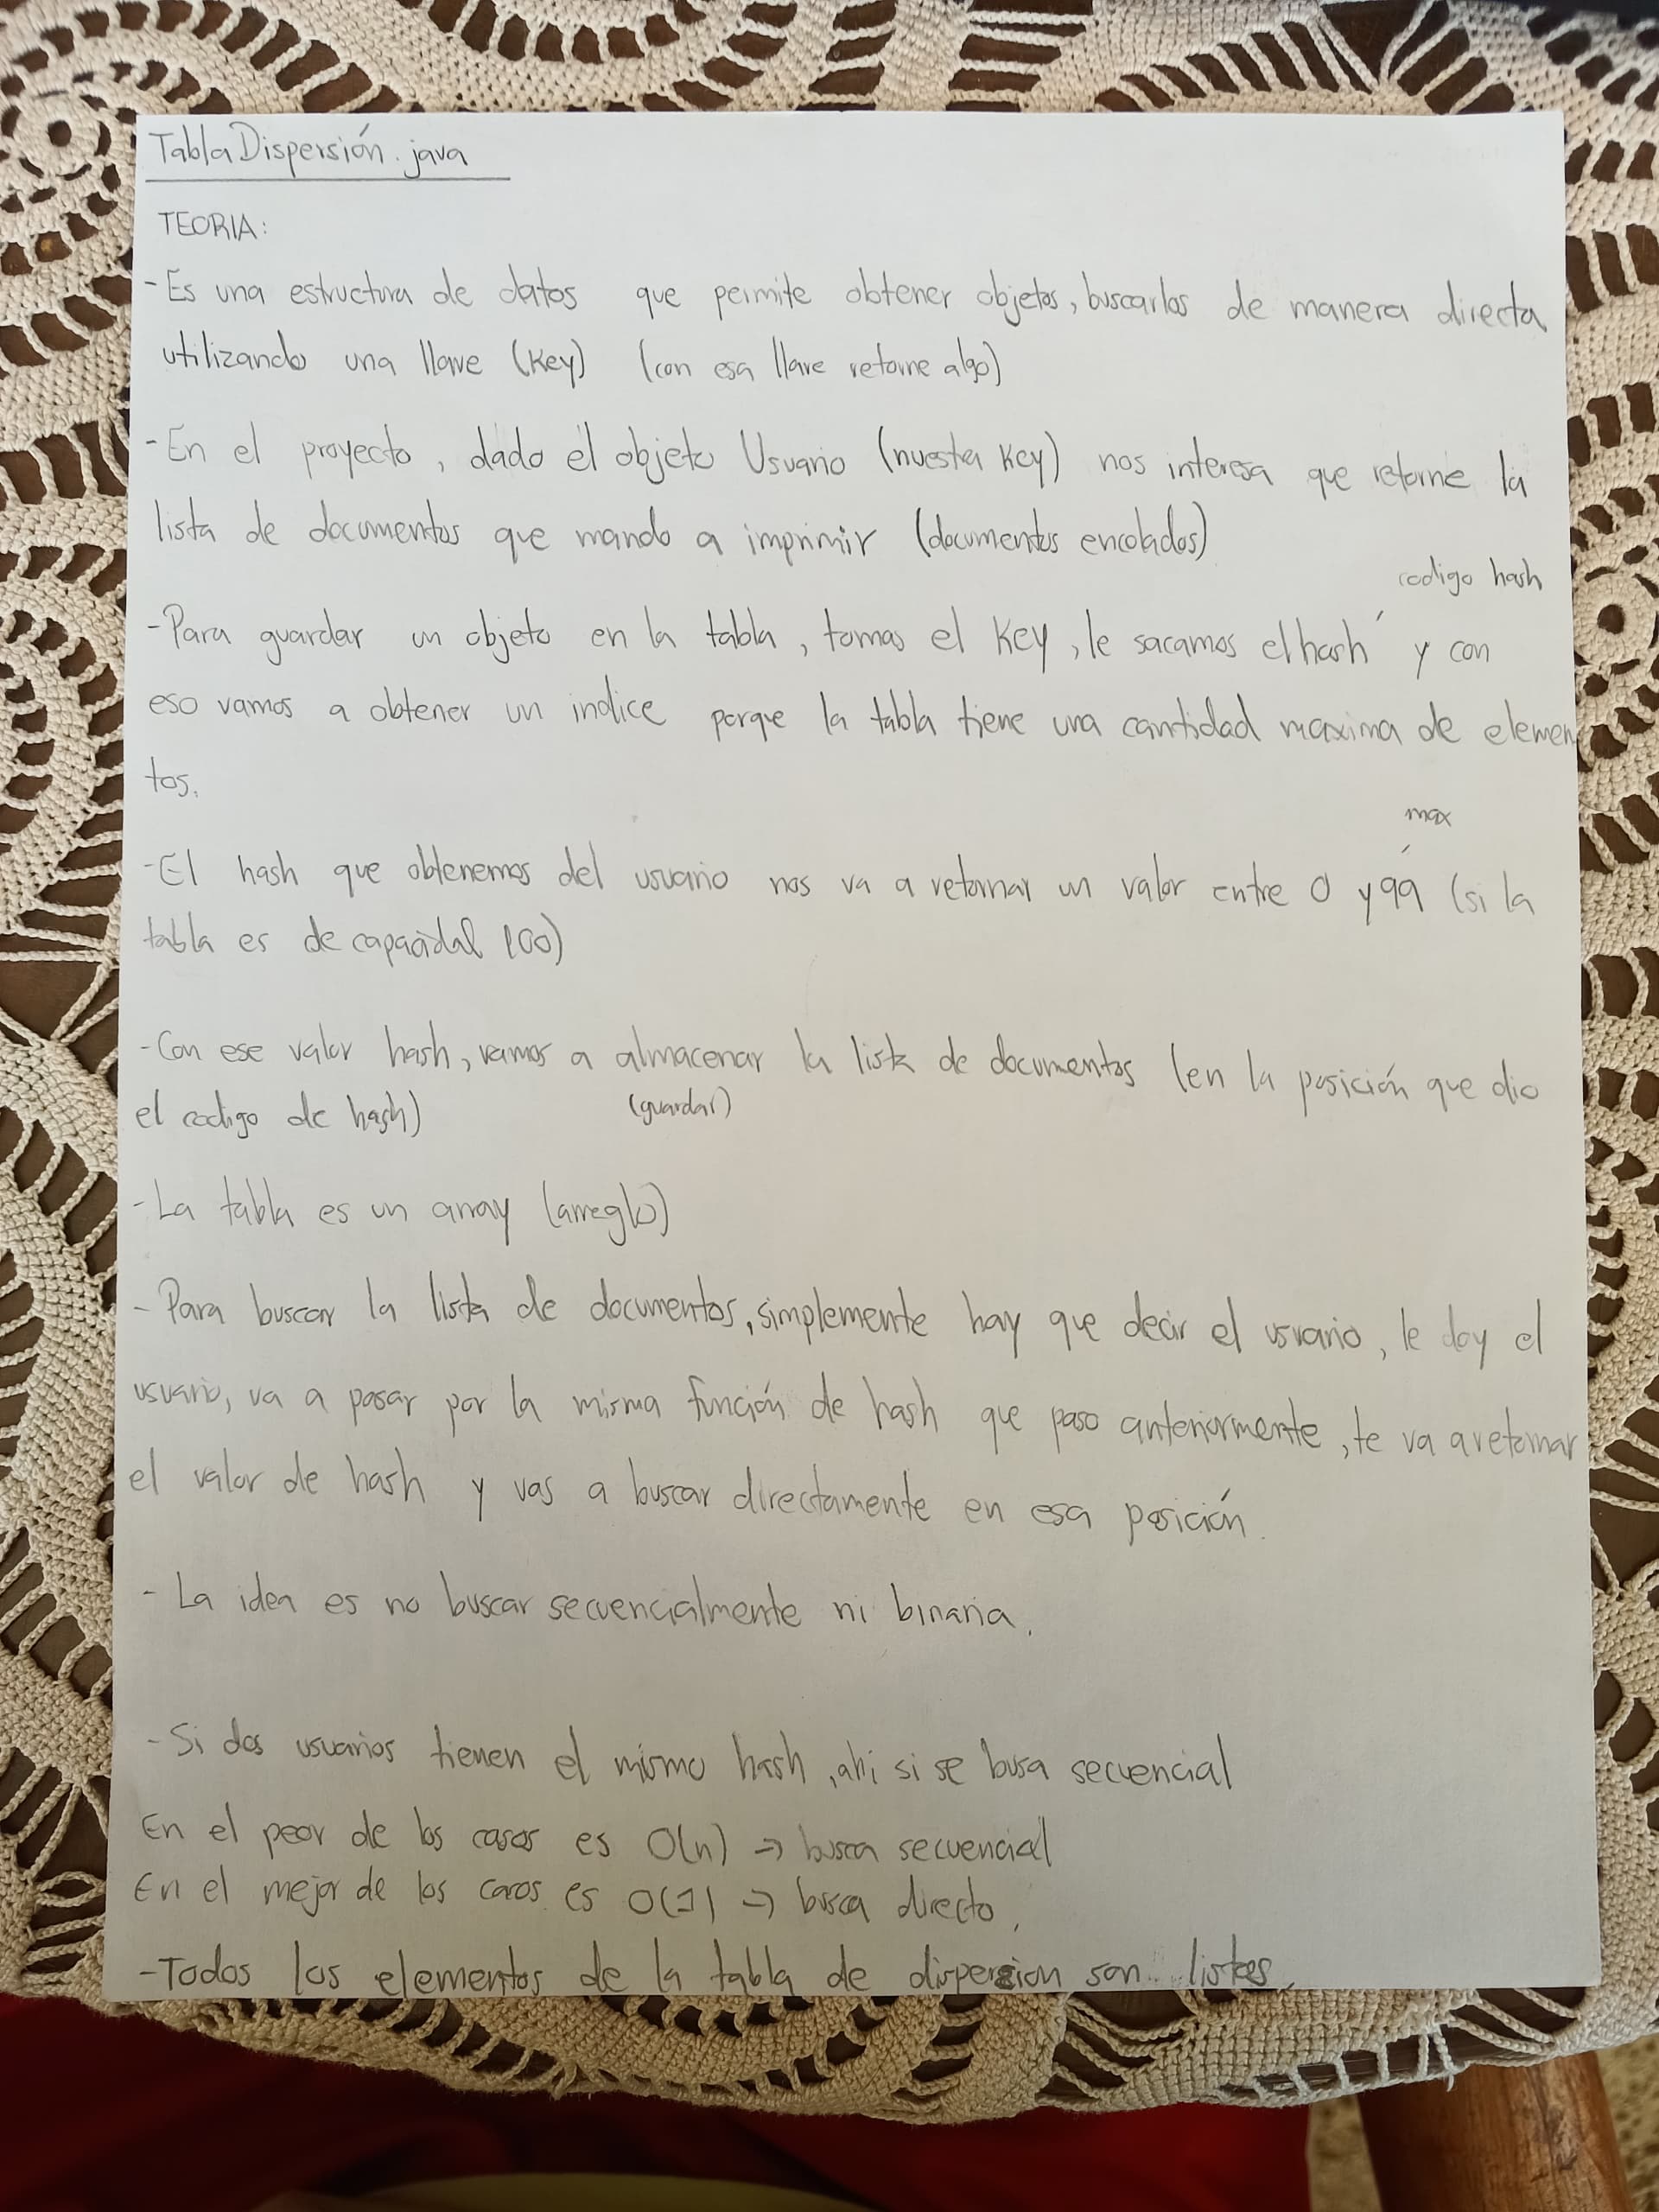 TablaDispersión.java
TEORIA:
-Es una estructura de datos que permite obtener objetos, buscarlos de manera directa
utilizando una llave (Key) (con esa llave retorne algo)
-En el proyecto, dado el objeto Usuario (nuestra Key) nos interesa que retorne la
lista de documentos que mando a imprimir (documentos encolados)
codigo hash
-Para guardar un objeto en la tabla, tomas el Key, le sacamos el hash y con
eso vamos a obtener un indice porque la tabla tiene una cantidad maxima de elemen
tos.
max
-El hash que obtenemos del usuario nos va a retornar un valor entre 0 y 99 (si la
tabla es de capacidad 100)
-Con ese valor hash, vamos a almacenar la lista de documentos (en la posición que dio
el codigo de hash) (guardar)
-La tabla es un array (arreglo)
-Para buscar la lista de documentos, simplemente hay que decir el usuario, le doy el
usuario, va a pasar por la misma función de hash que paso anteriormente, te va a retornar
el valor de hash y vas a buscar directamente en esa posición.
- La idea es no buscar secuencialmente ni binaria.
-Si dos usuarios tienen el mismo hash, ahi si se busa secuencial
En el peor de los casos es O(n) → busca secuencial
En el mejor de los casos es O(1) → busca directo.
-Todos los elementos de la tabla de dispersion son listas.